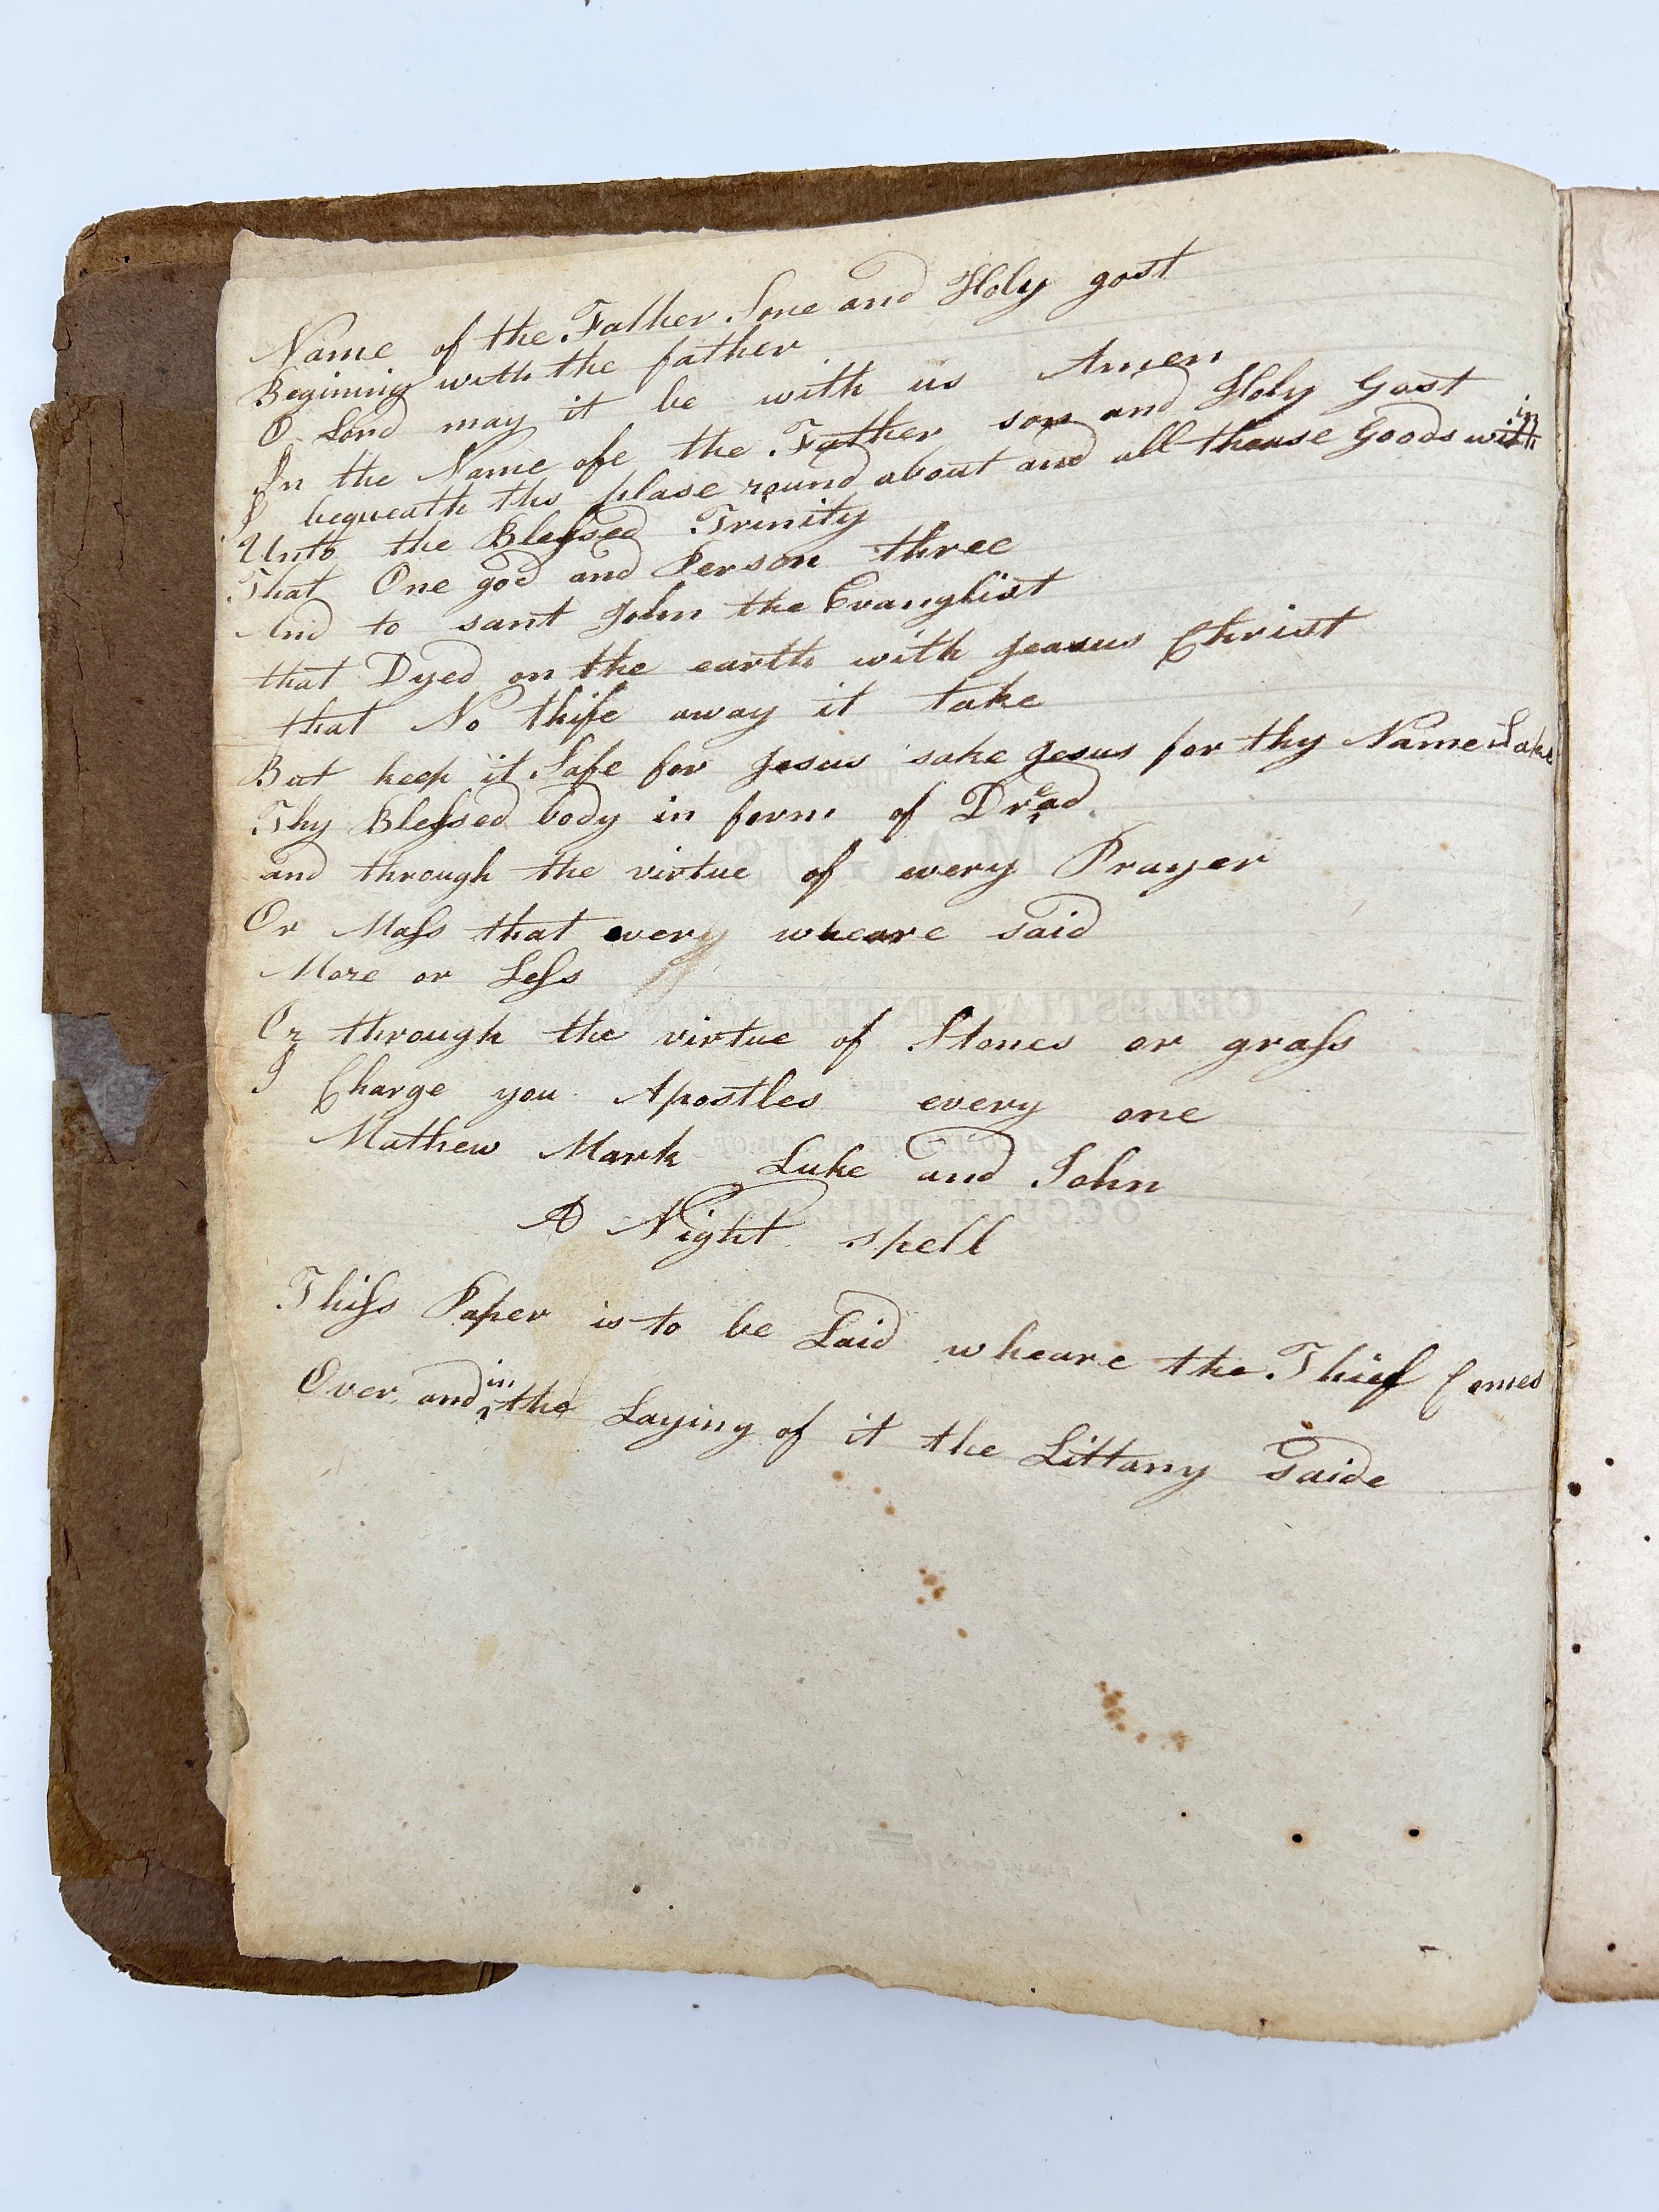 Name of the Father Sone and Holy gost
Begining with the father
O Lord may it be with us Amen
In the Name ofe the Father son and Holy Gost
I bequeath ths plase round about and all thouse Goods with in
Unto the Blessed Trinity
That One god and Person three
And to sant John the Evanglist
that Dyed on the earth with Jeasus Christ
that No thife away it take
But keep it Safe for Jesus sake Jesus for thy Name Sake
Thy Blessed body in form of Dread
and through the virtue of every Prayer
Or Mass that every wheare said
More or Less
Or through the virtue of Stones or grass
I Charge you Apostles every one
Mathew Mark Luke and John
A Night spell
Thiss Paper is to be Laid wheare the Thief Comes
Over and in the Laying of it the Littany Saide
MAGUS
CELESTIAL INTELLIGENCER
OCCULT PHILOSOPHY